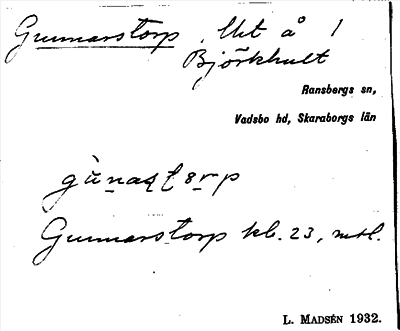 Gunnarstorp, Utt å 1
Björkhult
Ransbergs sn,
Vadsbo hd, Skaraborgs län
gùnastorp
Gunnarstorp kb. 23, mtl.
L. MADSÉN 1932.